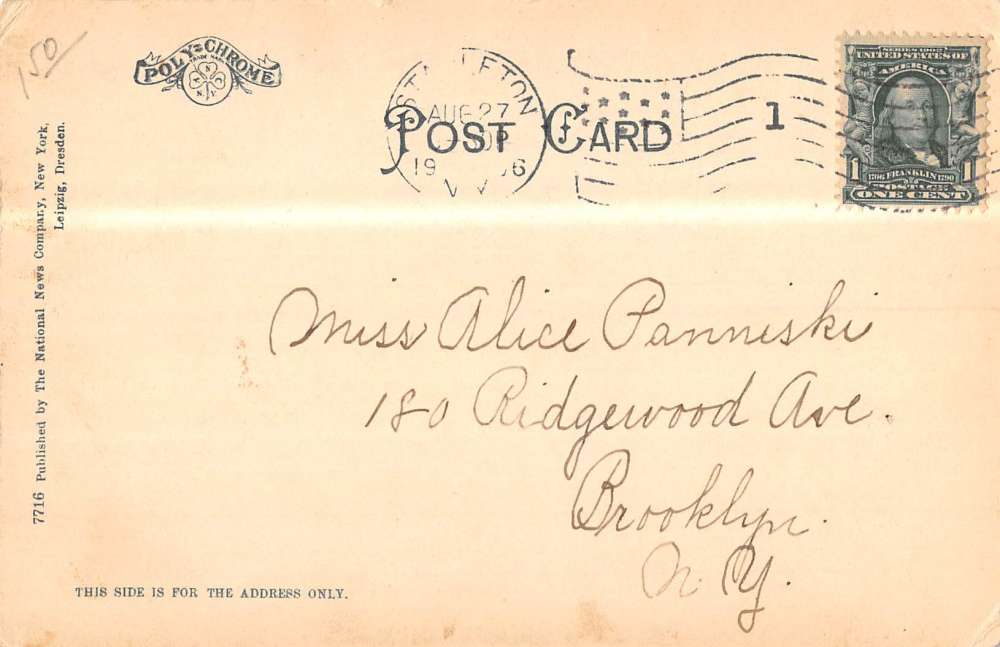 1.50
POLY-CHROME
TRADE MARK
N
N.Y.
STAPLETON
AUG 27
19 06
N.Y.
POST CARD
1
SERIES 1902
UNITED STATES OF
AMERICA
1 1706 FRANKLIN 1790 1
POSTAGE
ONE CENT
7716 Published by The National News Company, New York,
Leipzig, Dresden.
Miss Alice Panniski
180 Ridgewood Ave.
Brooklyn.
N.Y.
THIS SIDE IS FOR THE ADDRESS ONLY.